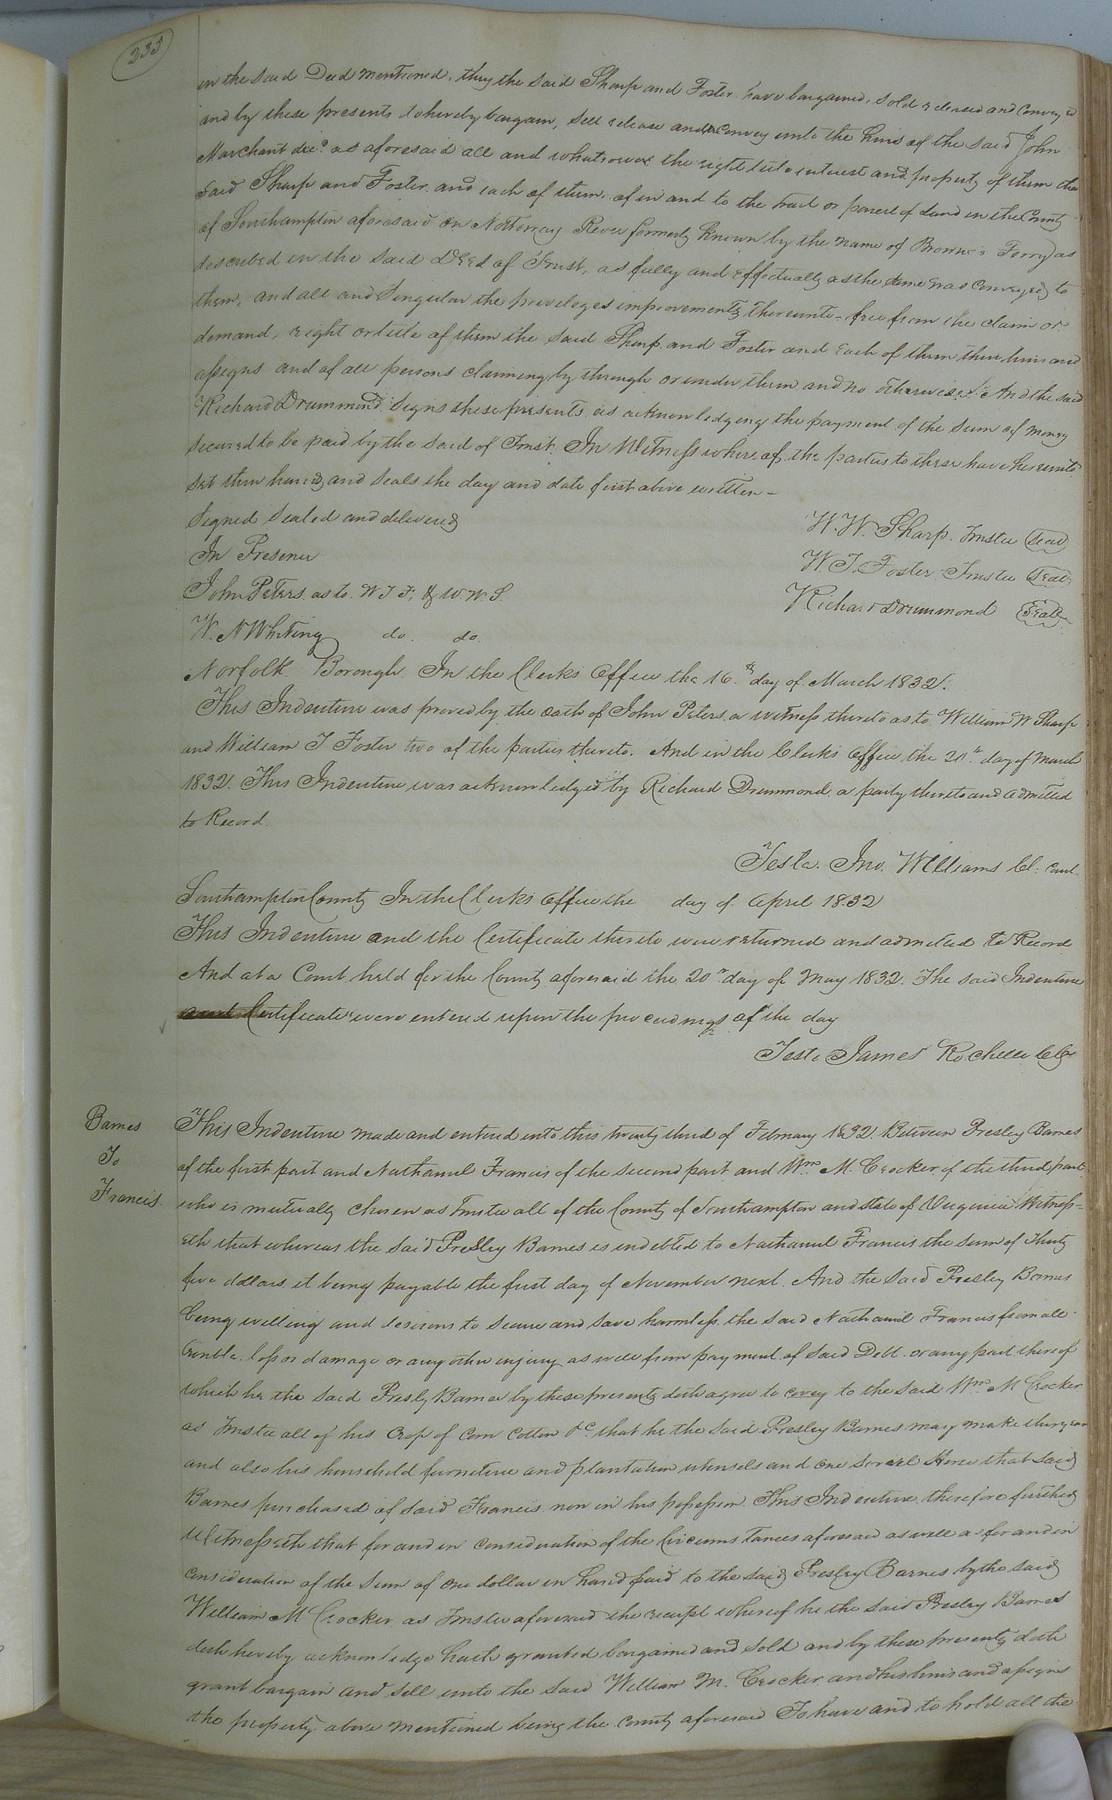 233
in the said Deed mentioned, they the said Sharp and Foster have bargained, sold released and Convey'd
and by these presents do hereby bargain, sell release and Convey unto the heirs of the said John
Marchant decd. as aforesaid all and whatsoever the right title interest and property of them the
said Sharp and Foster and each of them, of in and to the tract or parcel of Land in the County
of Southampton aforesaid on Nottoway River formerly known by the name of Browne's Ferry as
described in the said Deed of Trust, as fully and Effectually as the same was Conveyed to
them, and all and Singular the privileges improvements thereunto - free from the claim or
demand, right or title of them the said Sharp and Foster and Each of them their heirs and
assigns and of all persons claiming by through or under them and no otherwise. And the said
Richard Drummond signs these presents as acknowledging the payment of the sum of money
secured to be paid by the said of Trust. In Witness whereof the parties to these have hereunto
set their hands and seals the day and date first above written -
Signed Sealed and delivered
In Presence
W. W. Sharp. Trustee Seal
W T. Foster Trustee Seal
John Peters. as to. W T F. & W W S.
Richard Drummond Seal
W. N Whiting do. do.
Norfolk Borough. In the Clerks Office the 16.th day of March 1832.
This Indenture was proved by the oath of John Peters a witness thereto as to William W Sharp
and William T Foster two of the parties thereto. And in the Clerks office the 20th. day of March
1832. This Indenture was acknowledged by Richard Drummond a party thereto and admitted
to Record.
Teste. Jno. Williams Cl: Curl.
Southampton County In the Clerks office the day of April 1832
This Indenture and the Certificate thereto were returned and admitted to Record
And at a Court held for the County aforesaid the 20th day of May 1832. The said Indenture
and Certificate were entered upon the proceedings of the day
Teste James Rochelle
Barnes
To
Francis.
This Indenture made and entered into this twenty third of February 1832. Between Presley Barnes
of the first part and Nathaniel Francis of the second part and Wm M. Crocker of the third part
who is mutually chosen as Trustee all of the County of Southampton and state of Virginia Witness-
eth that whereas the said Presley Barnes is indebted to Nathaniel Francis the sum of Thirty
five dollars it being payable the first day of November next. And the said Presley Barnes
being willing and desirous to secure and save harmless the said Nathaniel Francis from all
trouble. loss or damage or any other injury as well from payment of said Debt. or any part thereof
which he the said Presly Barnes by these presents doth agree to covey to the said Wm M Crocker
as Trustee all of his Crop of Corn Cotton &c that he the said Presley Barnes may make this year
and also his household furniture and plantation utensels and one Sorrel Horse that said
Barnes purchased of said Francis now in his possession This Indenture therefore further
Witnesseth that for and in consideration of the Circumstances aforesaid as well as for and in
consideration of the sum of one dollar in hand paid to the said Presley Barnes by the said
William M Crocker as Trustee aforesaid the receipt whereof he the said Presley Barnes
doth hereby acknowledge hath granted bargained and sold and by these presents doth
grant bargain and sell unto the said William M. Crocker and his heirs and assigns
the property above mentioned being the County aforesaid To have and to hold all the